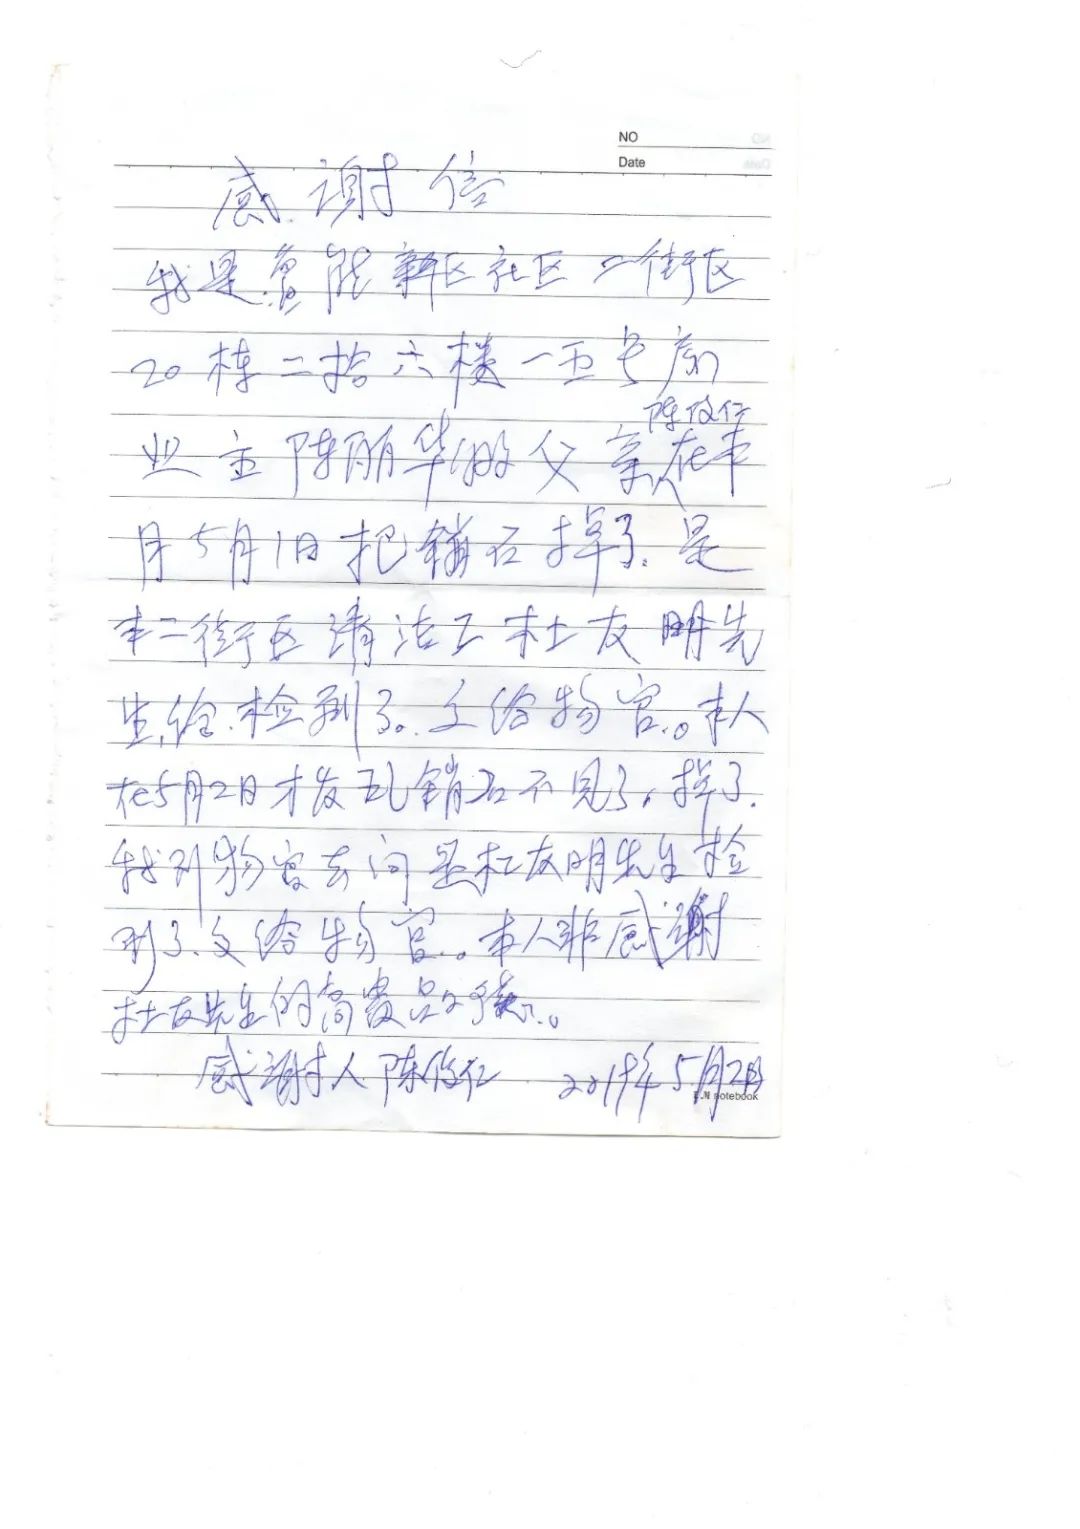 NO
Date
感谢信
我是鲁能新区社区二街区
20栋二拾六楼一五号房
陈俊仁
业主陈丽华的父亲在本
月5月1日把销石掉了.是
本二街区清洁工杜友明先
生给.检到了。交给物官.。本人
在5月2日才发现销石不见了,掉了.
我到物官去问是杜友明先生检
到了.交给物官.。本人非感谢
杜友先生的高贵品
感谢人陈俊仁 2019年5月2日
notebook